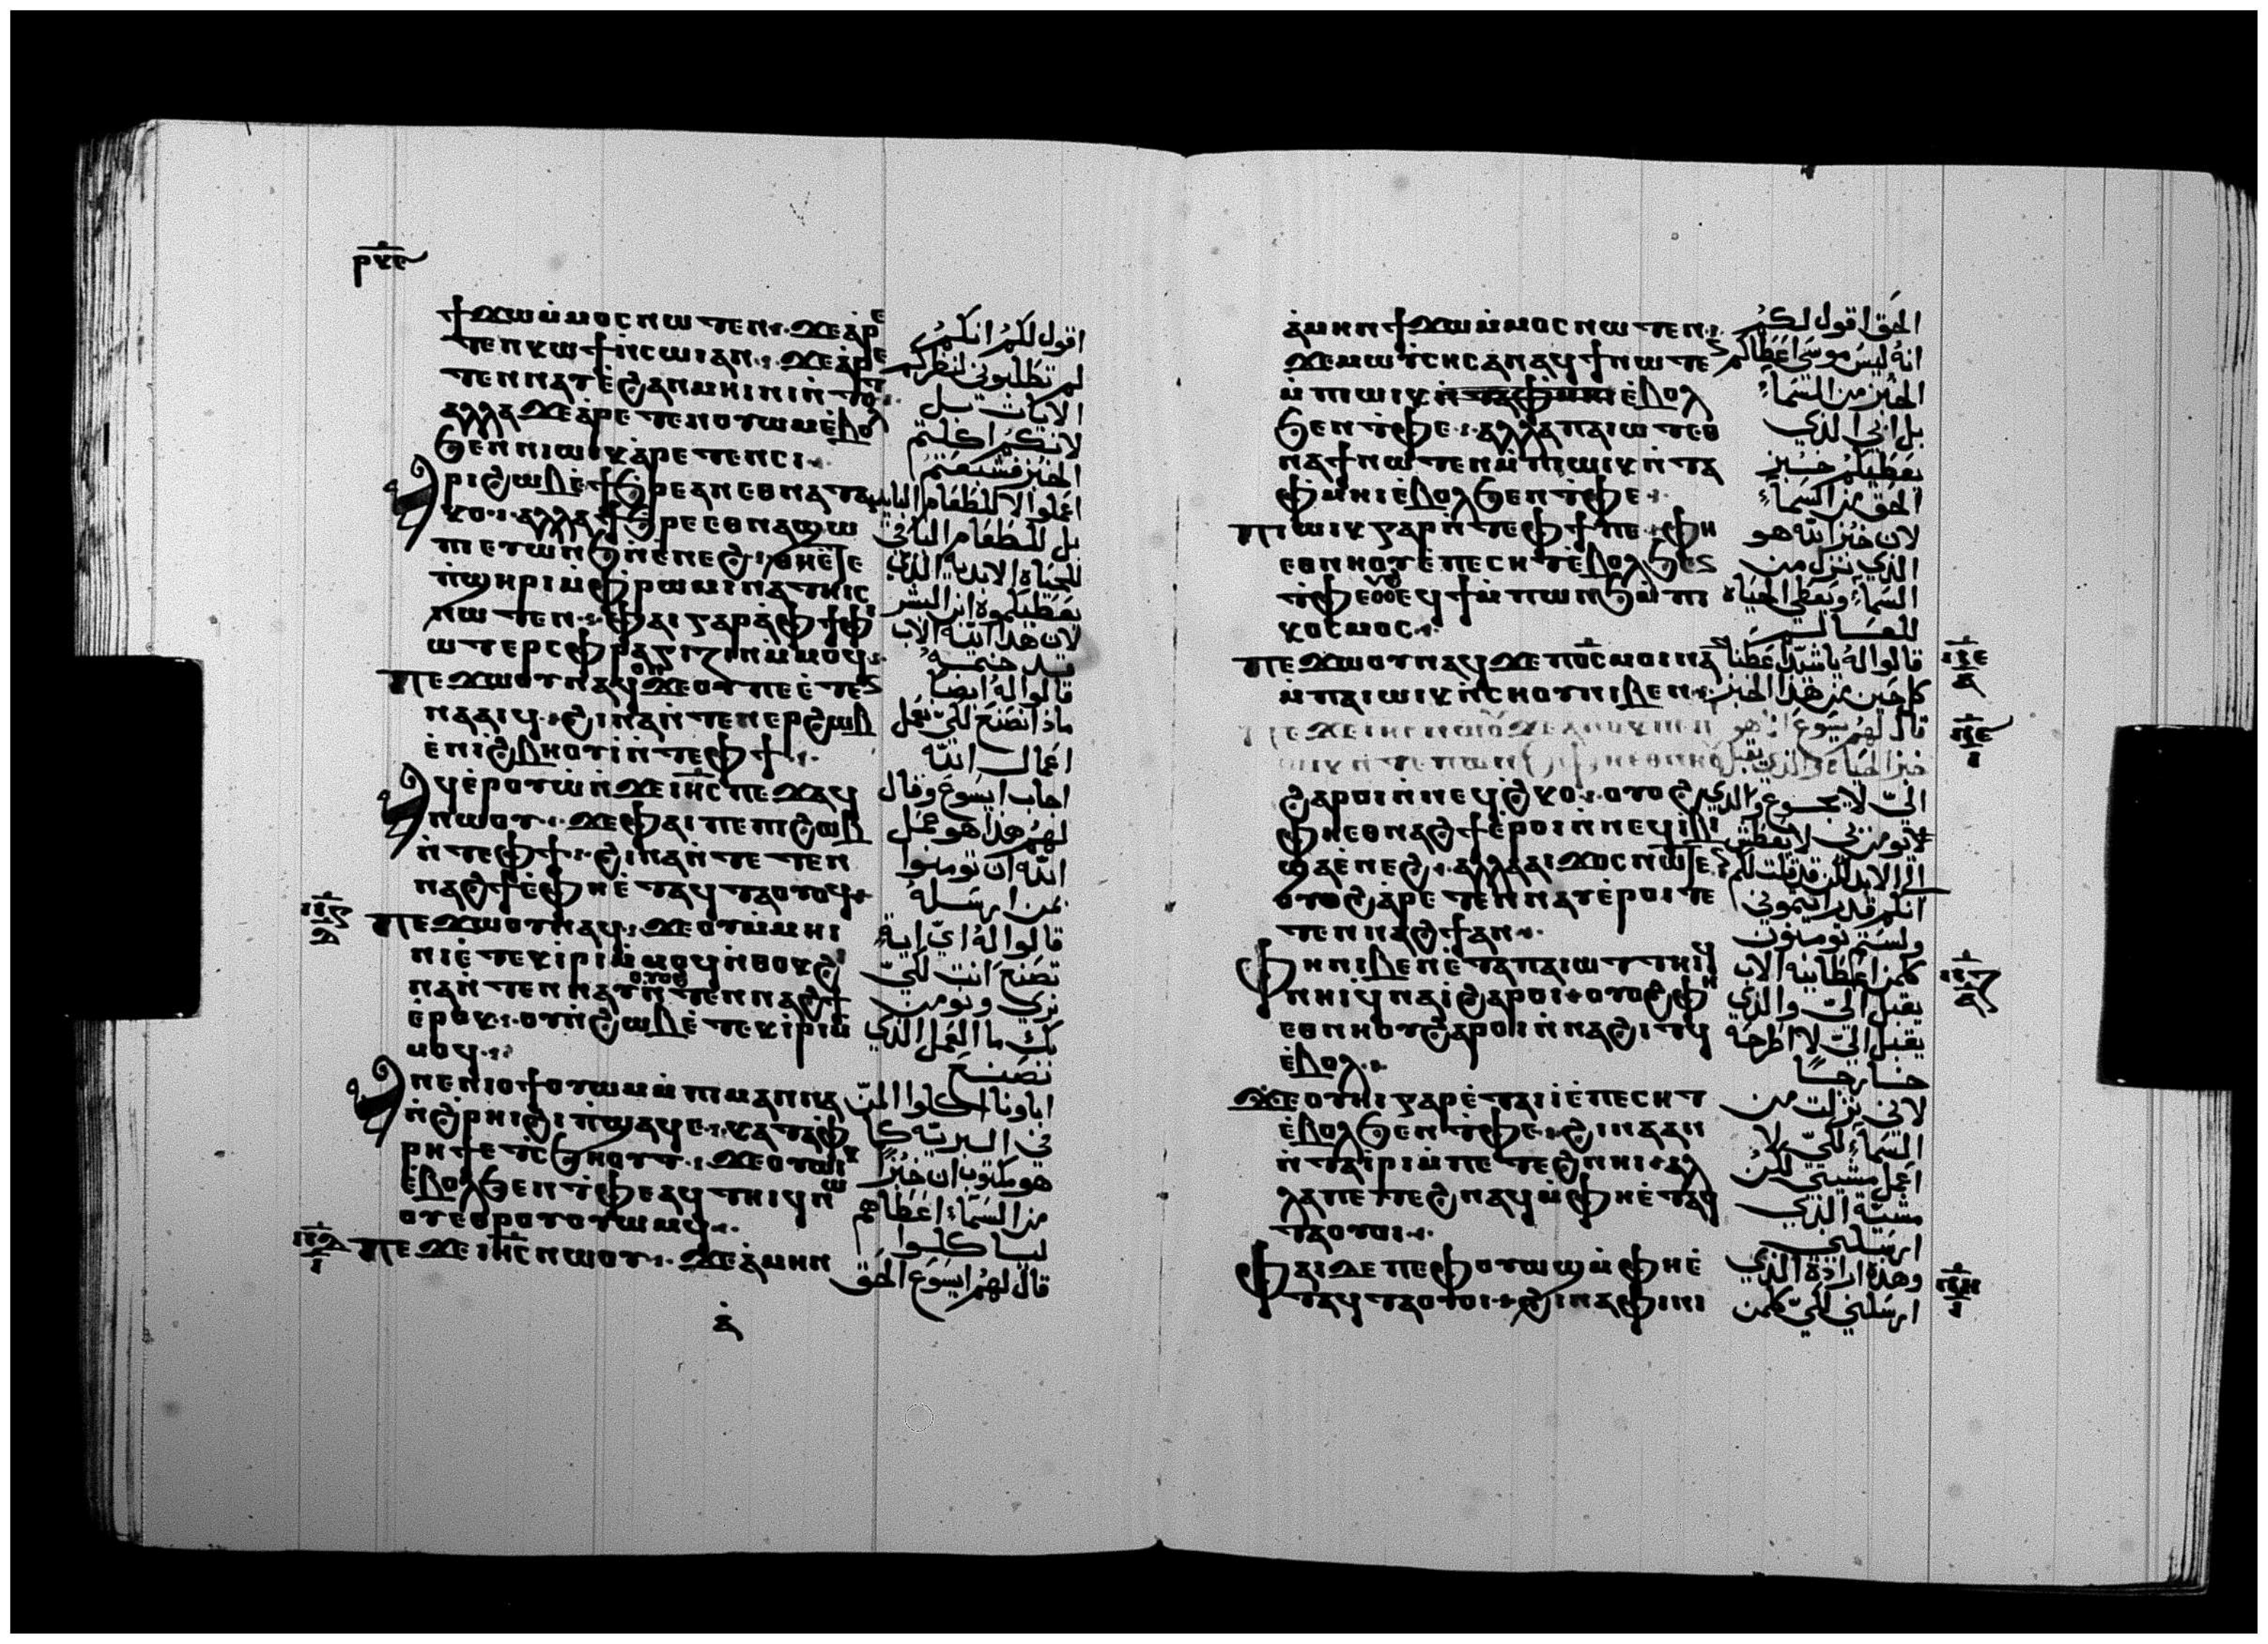 ⲣⲕⲉ
ϯϫⲱⲙ̇ⲙⲟⲥⲛⲱⲧⲉⲛ· ϫⲉⲁ̇ⲣⲉ
ⲧⲉⲛⲕⲱϯⲛ̇ⲥⲱⲓⲁⲛ· ϫⲉⲁ̇ⲣⲉ
ⲧⲉⲛⲛⲁⲩⲉ̇ϩⲁⲛⲙⲏⲓⲛⲓ
ⲁⲗⲗⲁϫⲉⲁ̇ⲣⲉⲧⲉⲛⲟⲩⲱⲙⲉ̇ⲃⲟⲗ
ϧⲉⲛⲛⲓⲱⲓⲕⲁ̇ⲣⲉⲧⲉⲛⲥⲓ·
ⲁⲣⲓϩⲱⲃⲉ̇ϯϧⲣⲉⲁⲛⲉⲑⲛⲁⲧⲁ
ⲕⲟ· ⲁⲗⲗⲁϯϧⲣⲉⲉⲑⲛⲁϣⲱ
ⲡⲉⲩⲱⲛϧⲛ̇ⲉⲛⲉϩ· ⲑⲏⲉ̇ⲧⲉ
ⲡ̇ϣⲏⲣⲓⲙ̇ⲫⲣⲱⲙⲓⲛⲁⲧⲏⲓⲥ
ⲛⲱⲧⲉⲛ· ⲫⲁⲓⲅⲁⲣⲁ̇ⲫϯⲫⲓ
ⲱⲧⲉⲣⲥⲫⲣⲁⲅⲓⲍⲓⲛⲙ̇ⲙⲟϥ·
ⲡⲉϫⲱⲟⲩⲛⲁϥⲟⲛϫⲉⲟⲩⲡⲉⲉ̇ⲧⲉⲛ
ⲛⲁⲁⲓϥ· ϩⲓⲛⲁⲛ̇ⲧⲉⲛⲉⲣϩⲱⲃ
ⲉ̇ⲛⲓϩⲃⲏⲟⲩⲓ̇ⲛ̇ⲧⲉⲫϯ·
ⲁϥⲉ̇ⲣⲟⲩⲱ̇ⲛ̇ϫⲉⲓⲏⲥⲡⲉϫⲁϥ
ⲛⲱⲟⲩ· ϫⲉⲫⲁⲓⲡⲉⲡⲓϩⲱⲃ
ⲛ̇ⲧⲉⲫϯ· ϩⲓⲛⲁⲛ̇ⲧⲉⲧⲉⲛ
ⲛⲁϩϯⲉ̇ⲫⲏⲉ̇ⲧⲁϥⲧⲁⲟⲩⲟϥ
ⲡⲉϫⲱⲟⲩⲛⲁϥ· ϫⲉⲟⲩⲙ̇ⲙⲏⲓ
ⲛⲓⲉ̇ⲧⲉⲕⲓ̇ⲣⲓⲙ̇ⲙⲟϥⲛ̇ⲑⲟⲕϩⲓ
ⲛⲁⲛ̇ⲧⲉⲛⲛⲁⲩⲟⲩⲟϩⲛ̇ⲧⲉⲛⲛⲁϩϯ
ⲉ̇ⲣⲟⲕ· ⲟⲩⲡ̇ϩⲱⲃⲉ̇ⲧⲉⲕⲓ̇ⲣⲓⲙ̇
ⲙⲟϥ·
ⲁⲛⲉⲛⲓⲟϯⲟⲩⲱⲙⲙ̇ⲡⲓⲙⲁⲛⲛⲁ
ⲛ̇ϩ̇ⲣⲏⲓϩⲓⲡ̇ϣⲁϥⲉ· ⲕⲁⲧⲁⲫ̇
ⲣⲏϯⲉⲧⲥ̇ϧⲏⲟⲩⲧ· ϫⲉⲟⲩⲱⲓⲕ
ⲉ̇ⲃⲟⲗϧⲉⲛⲧ̇ⲫⲉⲁϥⲧⲏⲓϥⲛⲱ
ⲟⲩⲉⲑⲣⲟⲩⲟⲩⲱⲙϥ·
ⲡⲉϫⲉⲓⲏⲥⲛⲱⲟⲩ· ϫⲉⲁ̇ⲙⲏⲛ
اقول لكم انكم
لم تطلبوني لنظركم
الايات بل
لانكم اكلتم
الخبز فشبعتم
اعملوا لا للطعام البايد
بل للطعام الباقي
للحياه الابدية الذي
يعطيكموه ابن البشر
لان هذا الله الاب
قد ختمه
قالوا له ايضا
ماذا نصنع لكي نعمل
اعمال الله
اجاب ايسوع وقال
لهم هذا هو عمل
الله ان تومنوا
بمن ارسله
قالوا له اي اية
تصنع انت لكي
نري ونومن
بك ما العمل الذي
تصنع
اباونا اكلوا المن
في البرية كما
هو مكتوب ان خبزا
من السماء اعطاهم
لياكلوا
قال لهم ايسوع الحق
ⲁ̇ⲙⲏⲛϯϫⲱⲙ̇ⲙⲟⲥⲛⲱⲧⲉⲛ·
ϫⲉⲙⲱⲩ̇ⲥⲏⲥⲁⲛⲁϥϯⲛⲱⲧⲉⲛ
ⲙ̇ⲡⲓⲱⲓⲕⲛ̇ⲧⲁⲫⲙⲏⲓⲉ̇ⲃⲟⲗ
ϧⲉⲛⲧ̇ⲫⲉ· ⲁⲗⲗⲁⲡⲁⲓⲱⲧⲉⲑ
ⲛⲁϯⲛⲱⲧⲉⲛⲙ̇ⲡⲓⲱⲓⲕⲛ̇ⲧⲁ
ⲫ̇ⲙⲏⲓⲉ̇ⲃⲟⲗϧⲉⲛⲧ̇ⲫⲉ·
ⲡⲓⲱⲓⲕⲅⲁⲣⲛ̇ⲧⲉⲫϯⲡⲉ· ⲫⲏ
ⲉⲑⲛⲏⲟⲩⲉ̇ⲡⲉⲥⲏⲧⲉ̇ⲃⲟⲗϧⲉⲛ
ⲧ̇ⲫⲉⲟⲩⲟϩⲉϥϯⲙ̇ⲡⲱⲛϧⲙ̇ⲡⲓ
ⲕⲟⲥⲙⲟⲥ·
ⲡⲉϫⲱⲟⲩⲛⲁϥϫⲉⲡⲟ̅ⲥ̅ⲙⲟⲓⲛⲁⲛ
ⲙ̇ⲡⲁⲓⲱⲓⲕⲛ̇ⲥⲏⲟⲩⲛⲓⲃⲉⲛ·
ϩⲁⲣⲟⲓⲛ̇ⲛⲉϥϩ̇ⲕⲟ· ⲟⲩⲟϩ
ⲫⲏⲉⲑⲛⲁϩϯⲉ̇ⲣⲟⲓⲛ̇ⲛⲉϥⲓ̇ⲃⲓ
ϣⲁⲉ̇ⲛⲉϩ· ⲁⲗⲗⲁⲁⲓϫⲟⲥⲛⲱⲧⲉⲛ
ⲟⲩⲟϩⲁ̇ⲣⲉⲧⲉⲛⲛⲁⲩⲉ̇ⲣⲟⲓⲧⲉ
ⲧⲉⲛⲛⲁϩϯⲁⲛ·
ⲫⲏⲛⲓⲃⲉⲛⲉ̇ⲧⲁⲡⲁⲓⲱⲧⲧⲏⲓϥ
ⲛⲏⲓϥ̇ⲛⲁⲓ̇ϩⲁⲣⲟⲓ· ⲟⲩⲟϩⲫⲏ
ⲉⲑⲛⲏⲟⲩϩⲁⲣⲟⲓⲛ̇ⲛⲁϩⲓⲧϥ
ⲉ̇ⲃⲟⲗ·
ϫⲉⲟⲩⲏⲓⲅⲁⲣⲉ̇ⲧⲁⲓⲓ̇ⲉ̇ⲡⲉⲥⲏⲧ
ⲉ̇ⲃⲟⲗϧⲉⲛⲧ̇ⲫⲉ· ϩⲓⲛⲁⲁⲛ
ⲛ̇ⲧⲁⲓ̇ⲣⲓⲙ̇ⲡⲉⲧⲉϩⲛⲏⲓ· ⲁⲗ
ⲗⲁⲡⲉⲧⲉϩⲛⲁϥⲙ̇ⲫⲏⲉ̇ⲧⲁϥ
ⲧⲁⲟⲩⲟⲓ·
ⲫⲁⲓⲇⲉⲡⲉⲫⲟⲩⲱϣⲙ̇ⲫⲏⲉ̇
ⲧⲁϥⲧⲁⲟⲩⲟⲓ· ϩⲓⲛⲁⲫⲏⲛⲓ
الحق اقول لكم
انه ليس موسي اعطاكم
الخبز من السماء
بل ابي الذي
يعطيكم خبز
الحق من السماء
لان خبز الله هو
الذي ينزل من
السماء ويعطي الحياه
للعالم
قالوا له يا سيد اعطنا
كل حين من هذا الخبز
قال لهم يسوع انا هو
خبز الحياه والذي يقبل
الي لا يجوع والذي
يومن بي لا يعطش
الي الابد لكن قد قلت لكم
انكم قد رايتموني
ولستم تومنون
كلمن اعطانيه الاب
يقبل الي والذي
يقبل الي لا اطرحه
خارجا
لاني نزلت من
السماء لكي لا
اعمل مشيتي لكن
مشية الذي
ارسلني
وهذه ارادة الذي
ارسلني لكي كلمن